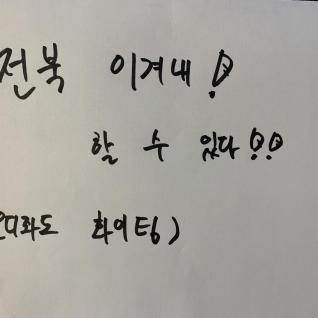 전북 이겨내!
할 수 있다!!
화이팅)